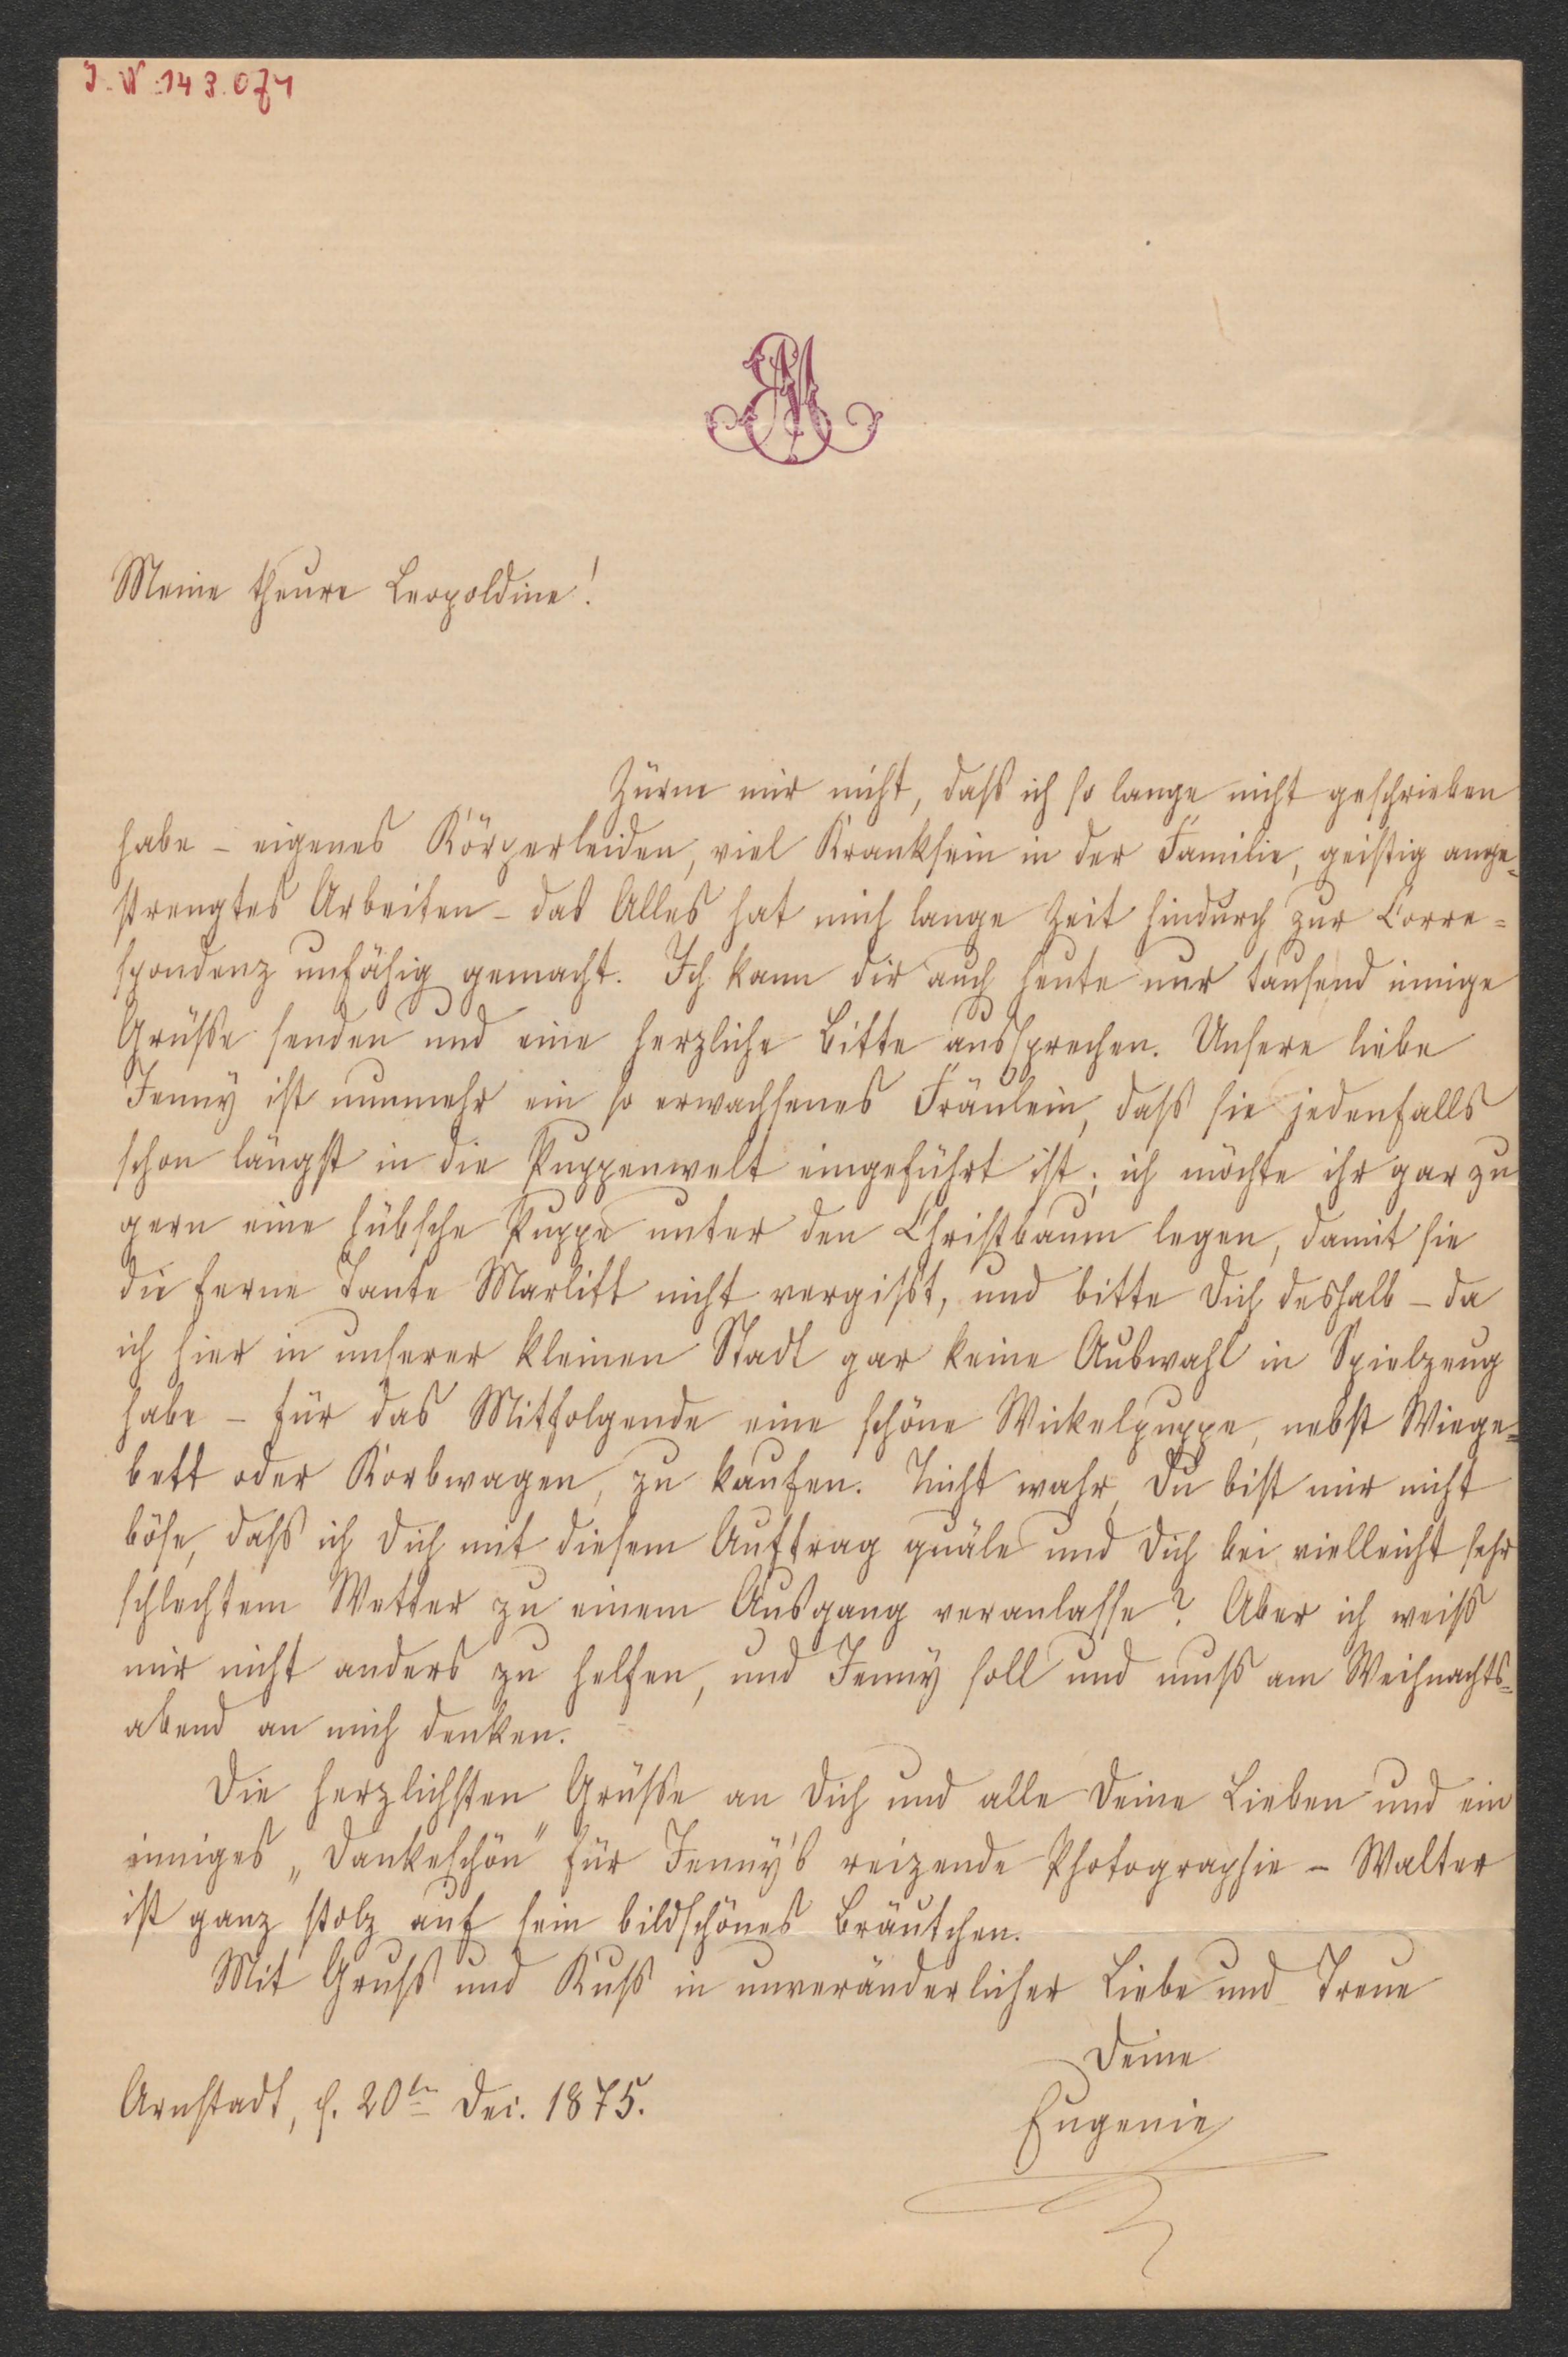 J. N. 143.071
EM
Meine theure Leopoldine!
Zürne mir nicht, daß ich so lange nicht geschrieben
habe – eigenes Körperleiden, viel Kranksein in der Familie, geistig ange-
strengtes Arbeiten – das Alles hat mich lange Zeit hindurch zur Corre-
spondenz unfähig gemacht. Ich kann dir auch heute nur tausend innige
Grüße senden und eine herzliche Bitte aussprechen. Unsere liebe
Jenny ist nunmehr ein so erwachsenes Fräulein, daß sie jedenfalls
schon längst in die Puppenwelt eingeführt ist; ich möchte ihr gar zu
gern eine hübsche Puppe unter den Christbaum legen, damit sie
die ferne Tante Marlitt nicht vergißt, und bitte Dich deshalb – da
ich hier in unserer kleinen Stadt gar keine Auswahl in Spielzeug
habe – für das Mitfolgende eine schöne Wickelpuppe, nebst Wiege-
bett oder Korbwagen, zu kaufen. Nicht wahr, Du bist mir nicht
böse, daß ich Dich mit diesem Auftrag quäle und Dich bei vielleicht sehr
schlechtem Wetter zu einem Ausgang veranlasse? Aber ich weiß
mir nicht anders zu helfen, und Jenny soll und muß am Weihnachts-
abend an mich denken.
Die herzlichsten Grüße an Dich und alle Deine Lieben und ein
inniges „Dankeschön“ für Jenny's reizende Photographie – Walter
ist ganz stolz auf sein bildschönes Bräutchen.
Mit Gruß und Kuß in unveränderlicher Liebe und Treue
Deine
Arnstadt, d. 20ten Dec. 1875.
Eugenie